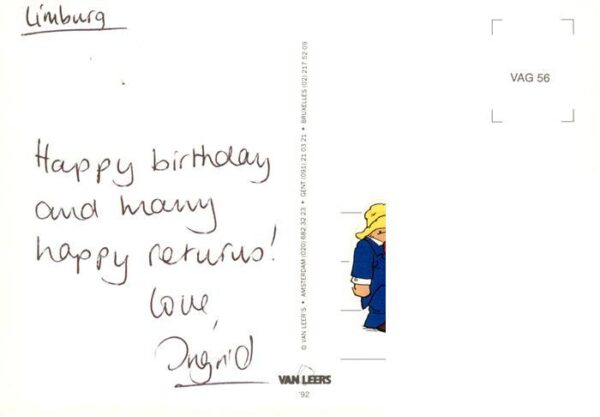 Limburg
Happy birthday
and many
happy returns!
love,
Ingrid
© VAN LEER'S • AMSTERDAM (020) 682 32 23 • GENT (091) 21 03 21 • BRUXELLES (02) 217 52 09
VAN LEERS
'92
VAG 56